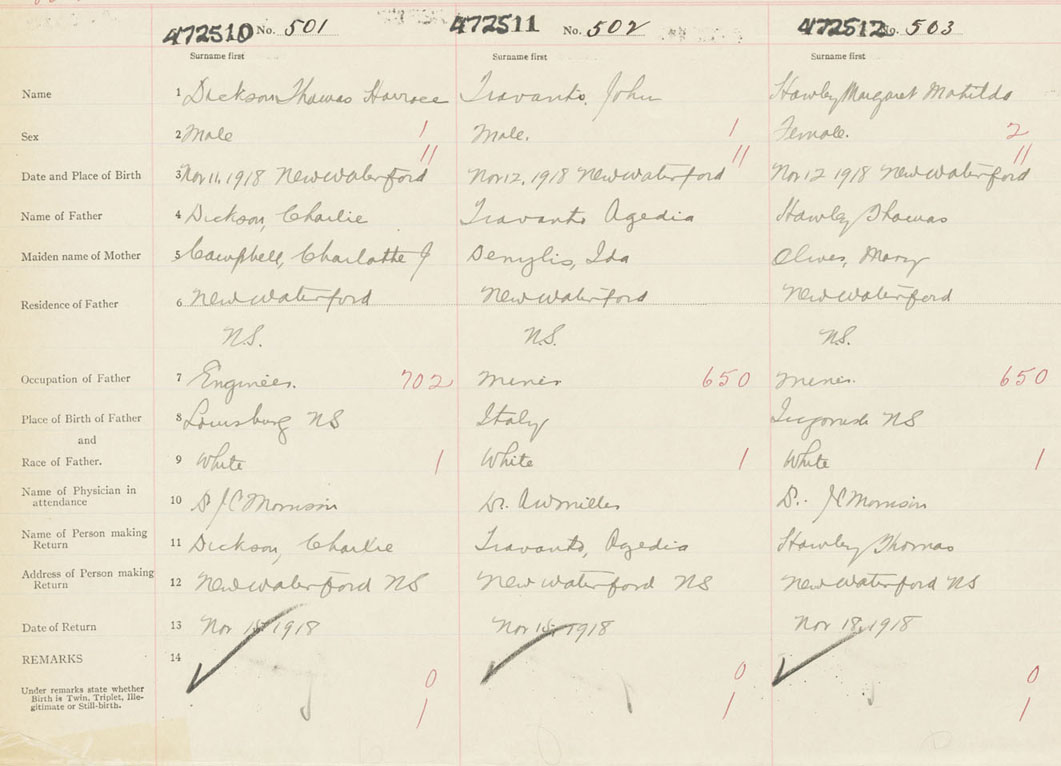 472510 No. 501 472511 No. 502 472512 No. 503
Surname first Surname first Surname first
Name 1 Dickson Thomas Horrace Travanto, John Hawley Margaret Matilda
Sex 2 Male 1 Male. 1 Female. 2
11 11 11
Date and Place of Birth 3 Nov 11, 1918 New Waterford Nov 12, 1918 New Waterford Nov 12 1918 New Waterford
Name of Father 4 Dickson, Charlie Travanto Agedia Hawley Thomas
Maiden name of Mother 5 Campbell, Charlotte J Ida Mary
Residence of Father 6 New Waterford New Waterford New Waterford
N.S. N.S. N.S.
Occupation of Father 7 Engineer. 702 miner 650 miner. 650
Place of Birth of Father 8 Louisburg NS Italy NS
and
Race of Father. 9 White 1 White 1 White 1
Name of Physician in
attendance 10 D J C Morrison Dr. A W Miller D.. J C Morrison
Name of Person making
Return 11 Dickson, Charlie Travanto, Agedia Hawley Thomas
Address of Person making
Return 12 New Waterford NS New Waterford NS New Waterford NS
Date of Return 13 Nov 1918 Nov 1918 Nov 18, 1918
REMARKS 14
0 0 0
Under remarks state whether
Birth is Twin, Triplet, Ille-
gitimate or Still-birth. 1 1 1